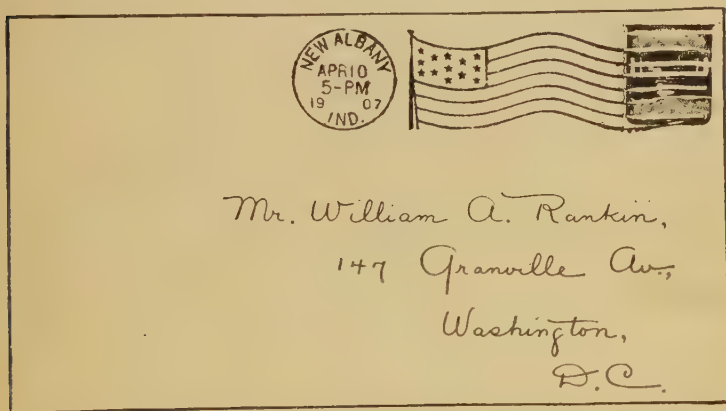 NEW ALBANY
APR 10
5-PM
19 07
IND.
Mr. William A. Rankin,
147 Granville Av.,
Washington,
D.C.